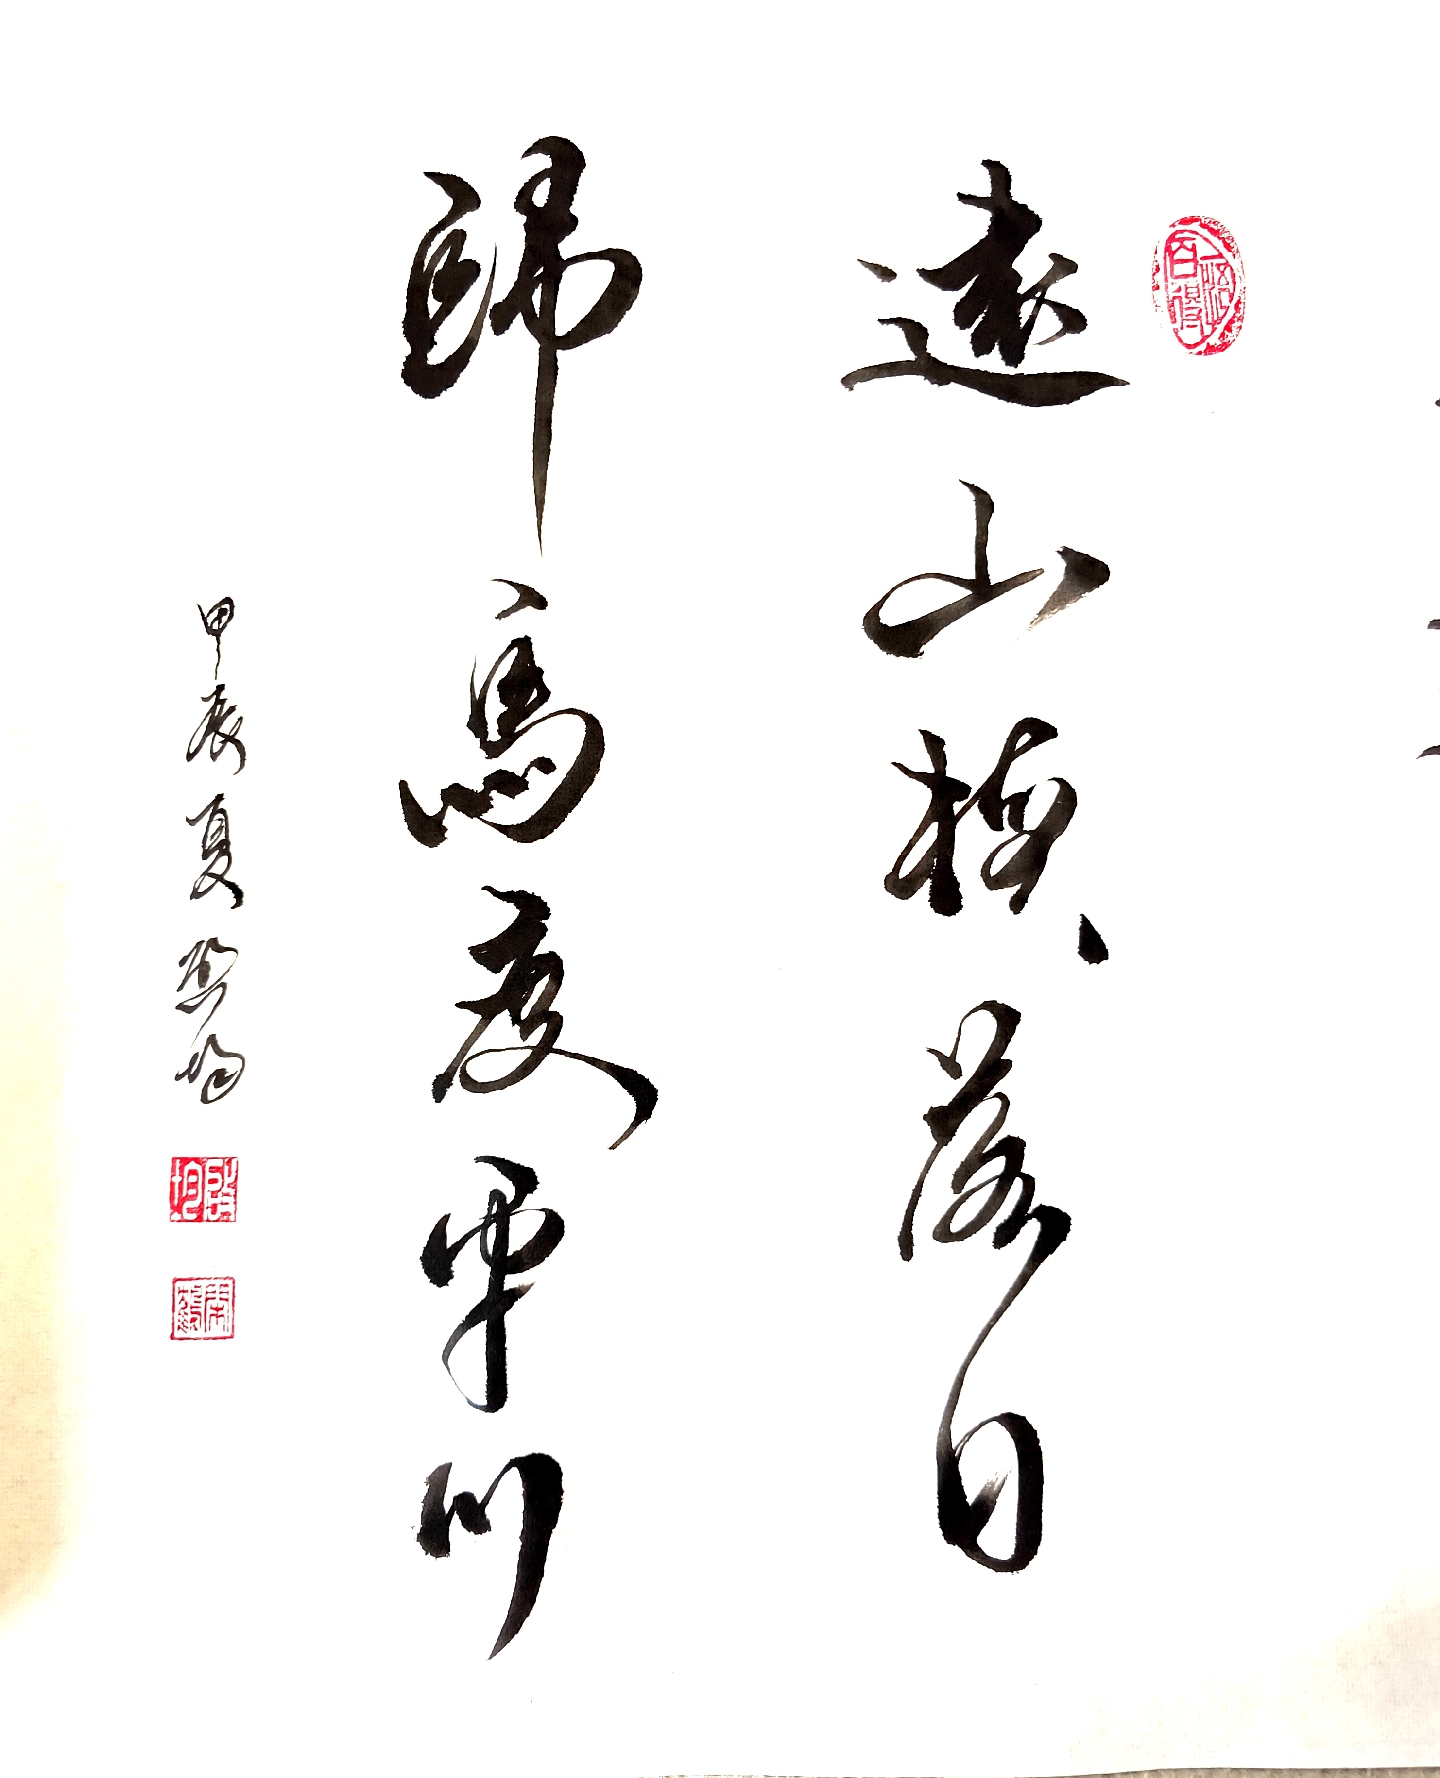 遠山橫落日
歸鳥度平川
甲辰夏